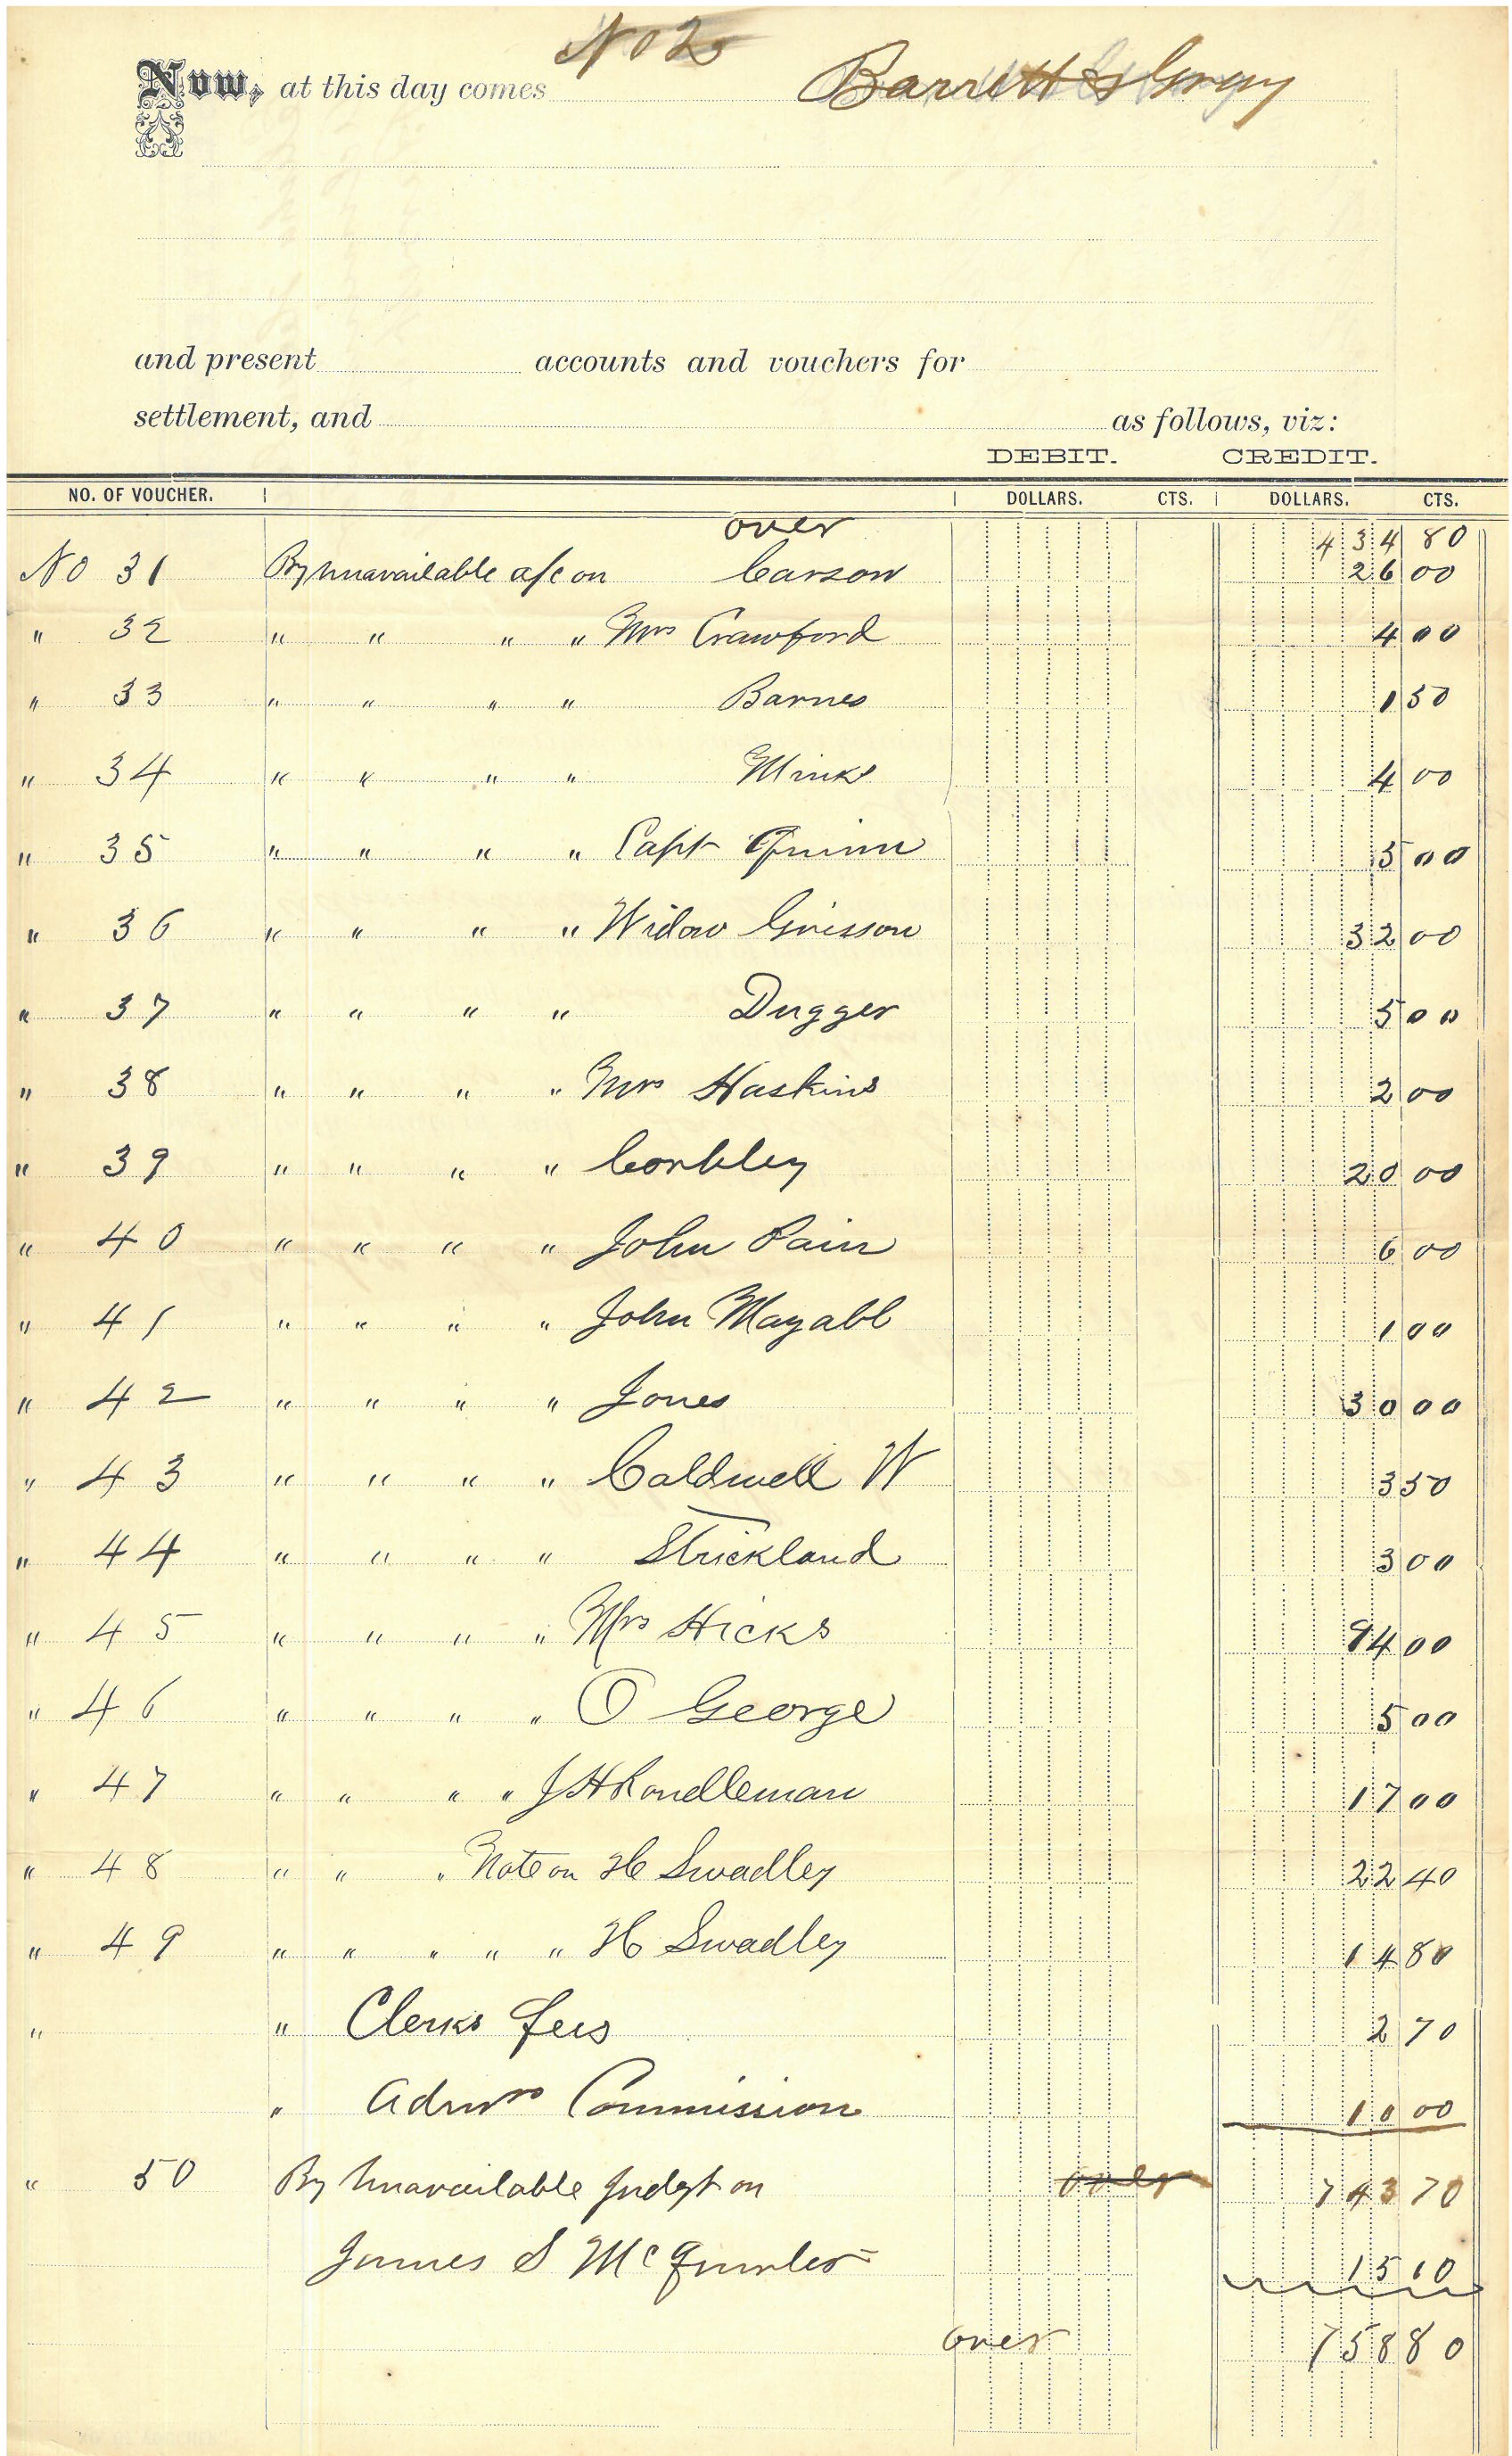 No 2
Now, at this day comes Barrett & Gray
and present accounts and vouchers for
settlement, and as follows, viz:
DEBIT. CREDIT.
NO. OF VOUCHER. DOLLARS. CTS. DOLLARS. CTS.
over 434 80
No 31 By Unavailable a/c on Carson 26 00
" 32 " " " " Mrs Crawford 4 00
" 33 " " " " Barnes 1 50
" 34 " " " " Minks 4 00
" 35 " " " " Capt Quinn 5 00
" 36 " " " " Widow Grissom 32 00
" 37 " " " " Dugger 5 00
" 38 " " " " Mrs Haskins 2 00
" 39 " " " " Corkley 20 00
" 40 " " " " John Pain 6 00
" 41 " " " " John Mayabb 1 00
" 42 " " " " Jones 30 00
" 43 " " " " Caldwell W 3 50
" 44 " " " " Strickland 3 00
" 45 " " " " Mrs Hicks 94 00
" 46 " " " " O George 5 00
" 47 " " " " J H Rondleman 17 00
" 48 " " " Note on H Swadley 22 40
" 49 " " " " " H Swadley 14 80
" " Clerks fees 2 70
" Admrs Commission 10 00
" 50 By Unavailable Judgt on over 743 70
James S 15 10
over 758 80